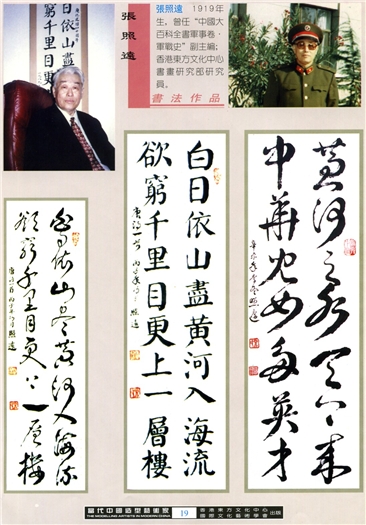 張照遠
張照遠 1919年
生。曾任“中國大
百科全書軍事卷·
軍戰史”副主編;
香港東方文化中心
書畫研究部研究
員。
書法作品
黃河之水天上來
中華兒女多英才
照遠
白日依山盡黃河入海流
欲窮千里目更上一層樓
照遠
白日依山盡黃河入海流
欲窮千里目更上一層樓
照遠
當代中國造型藝術家
THE MODELLING ARTISTS IN MODERN CHINA
19
香港東方文化中心
國際文化藝術學會
出版